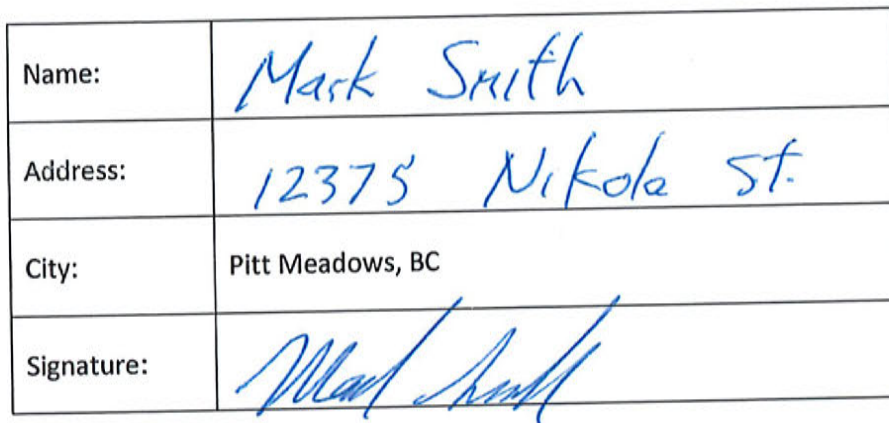 Name: Mark Smith
Address: 12375 Nikola St.
City: Pitt Meadows, BC
Signature: Mark Smith